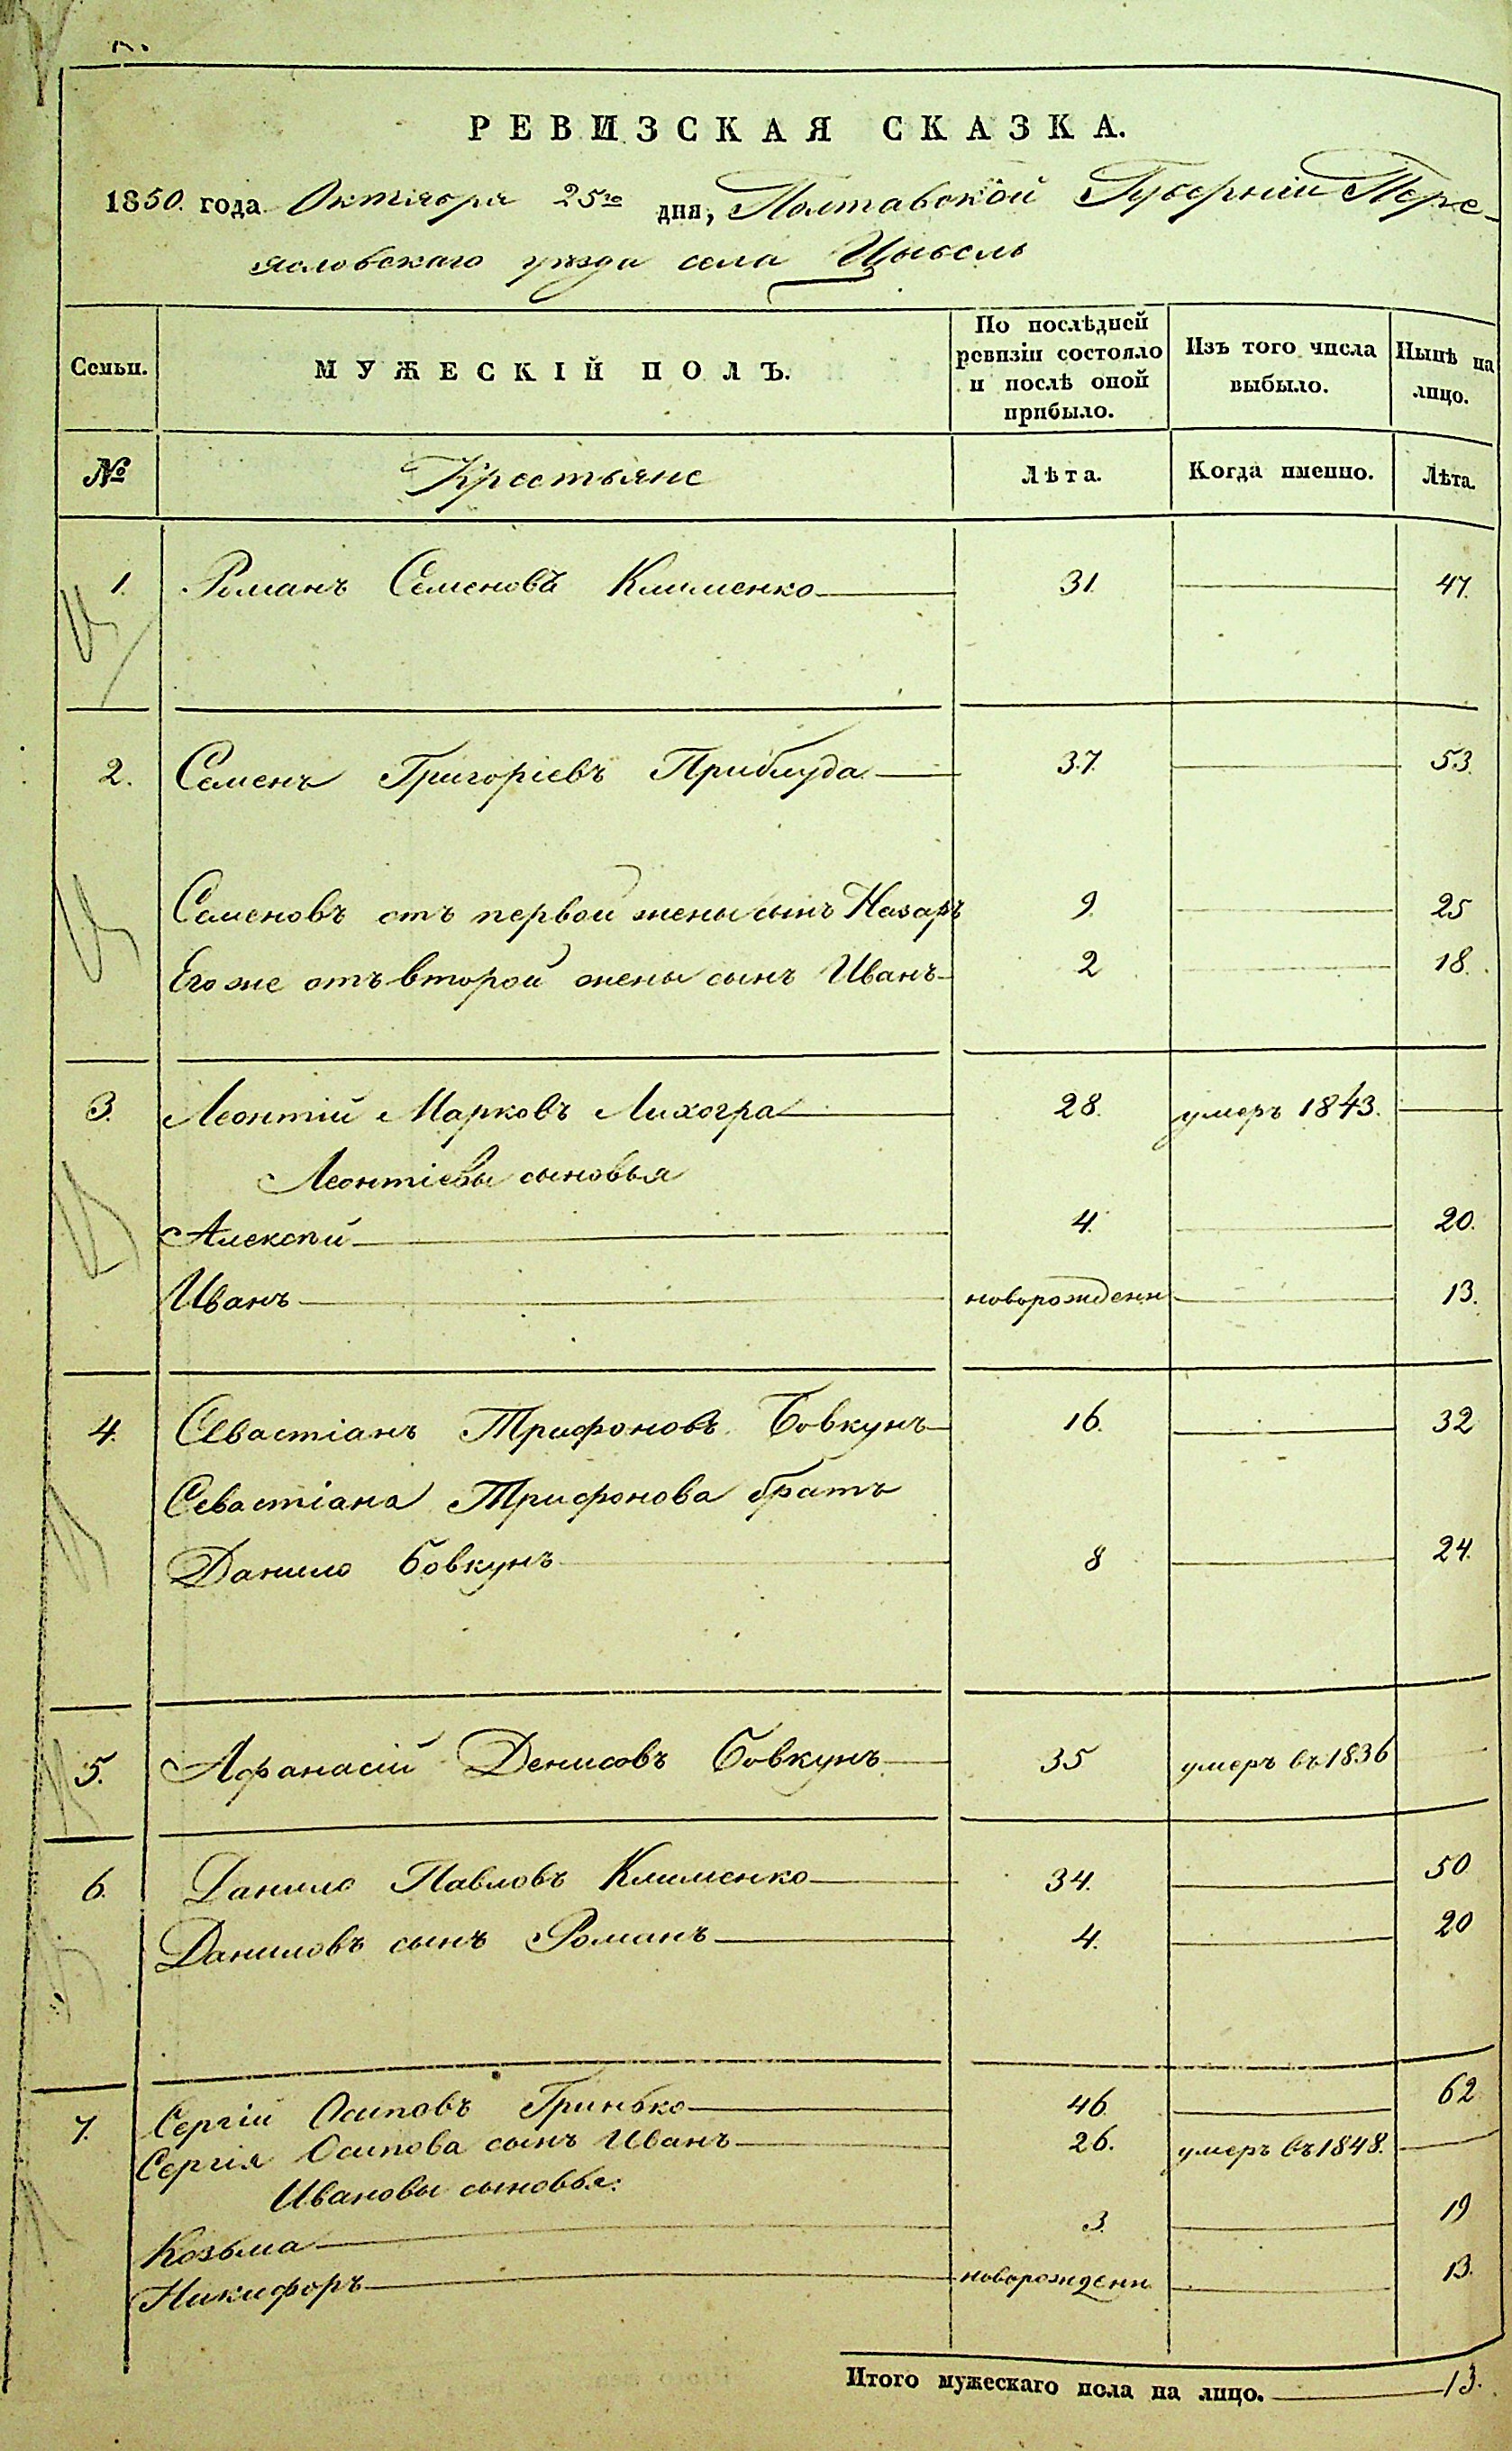 РЕВИЗСКАЯ СКАЗКА.
1850. года Октября 25го дня, Полтавской Губерніи Пере-
ясловскаго уѣзда села Цыбель
Семьи.
МУЖЕСКІЙ ПОЛЪ.
По послѣдней ревизіи состояло и послѣ оной прибыло.
Изъ того числа выбыло.
Нынѣ на лицо.
№
Крестьяне
Лѣта.
Когда именно.
Лѣта.
1. Романъ Семеновъ Клименко 31. 47.
2. Семенъ Григоріевъ Приблуда 37. 53.
Семеновъ отъ первой жены сынъ Назаръ 9. 25
Его же отъ второй жены сынъ Иванъ 2 18.
3. Леонтій Марковъ Лихогра 28. умеръ 1843.
Леонтіевы сыновья
Алексѣй 4. 20.
Иванъ новорожденн 13.
4. Севастіанъ Трифоновъ Бовкунъ 16. 32
Севастіана Трифонова братъ
Данило Бовкунъ 8 24.
5. Афанасій Денисовъ Бовкунъ 35 умеръ въ 1836
6. Данило Павловъ Клименко 34. 50
Даниловъ сынъ Романъ 4. 20
7. Сергій Осиповъ Гринько 46. 62
Сергія Осипова сынъ Иванъ 26. умеръ въ 1848.
Ивановы сыновья:
Козьма 3. 19
Никифоръ новорожденн 13.
Итого мужескаго пола на лицо. 13.